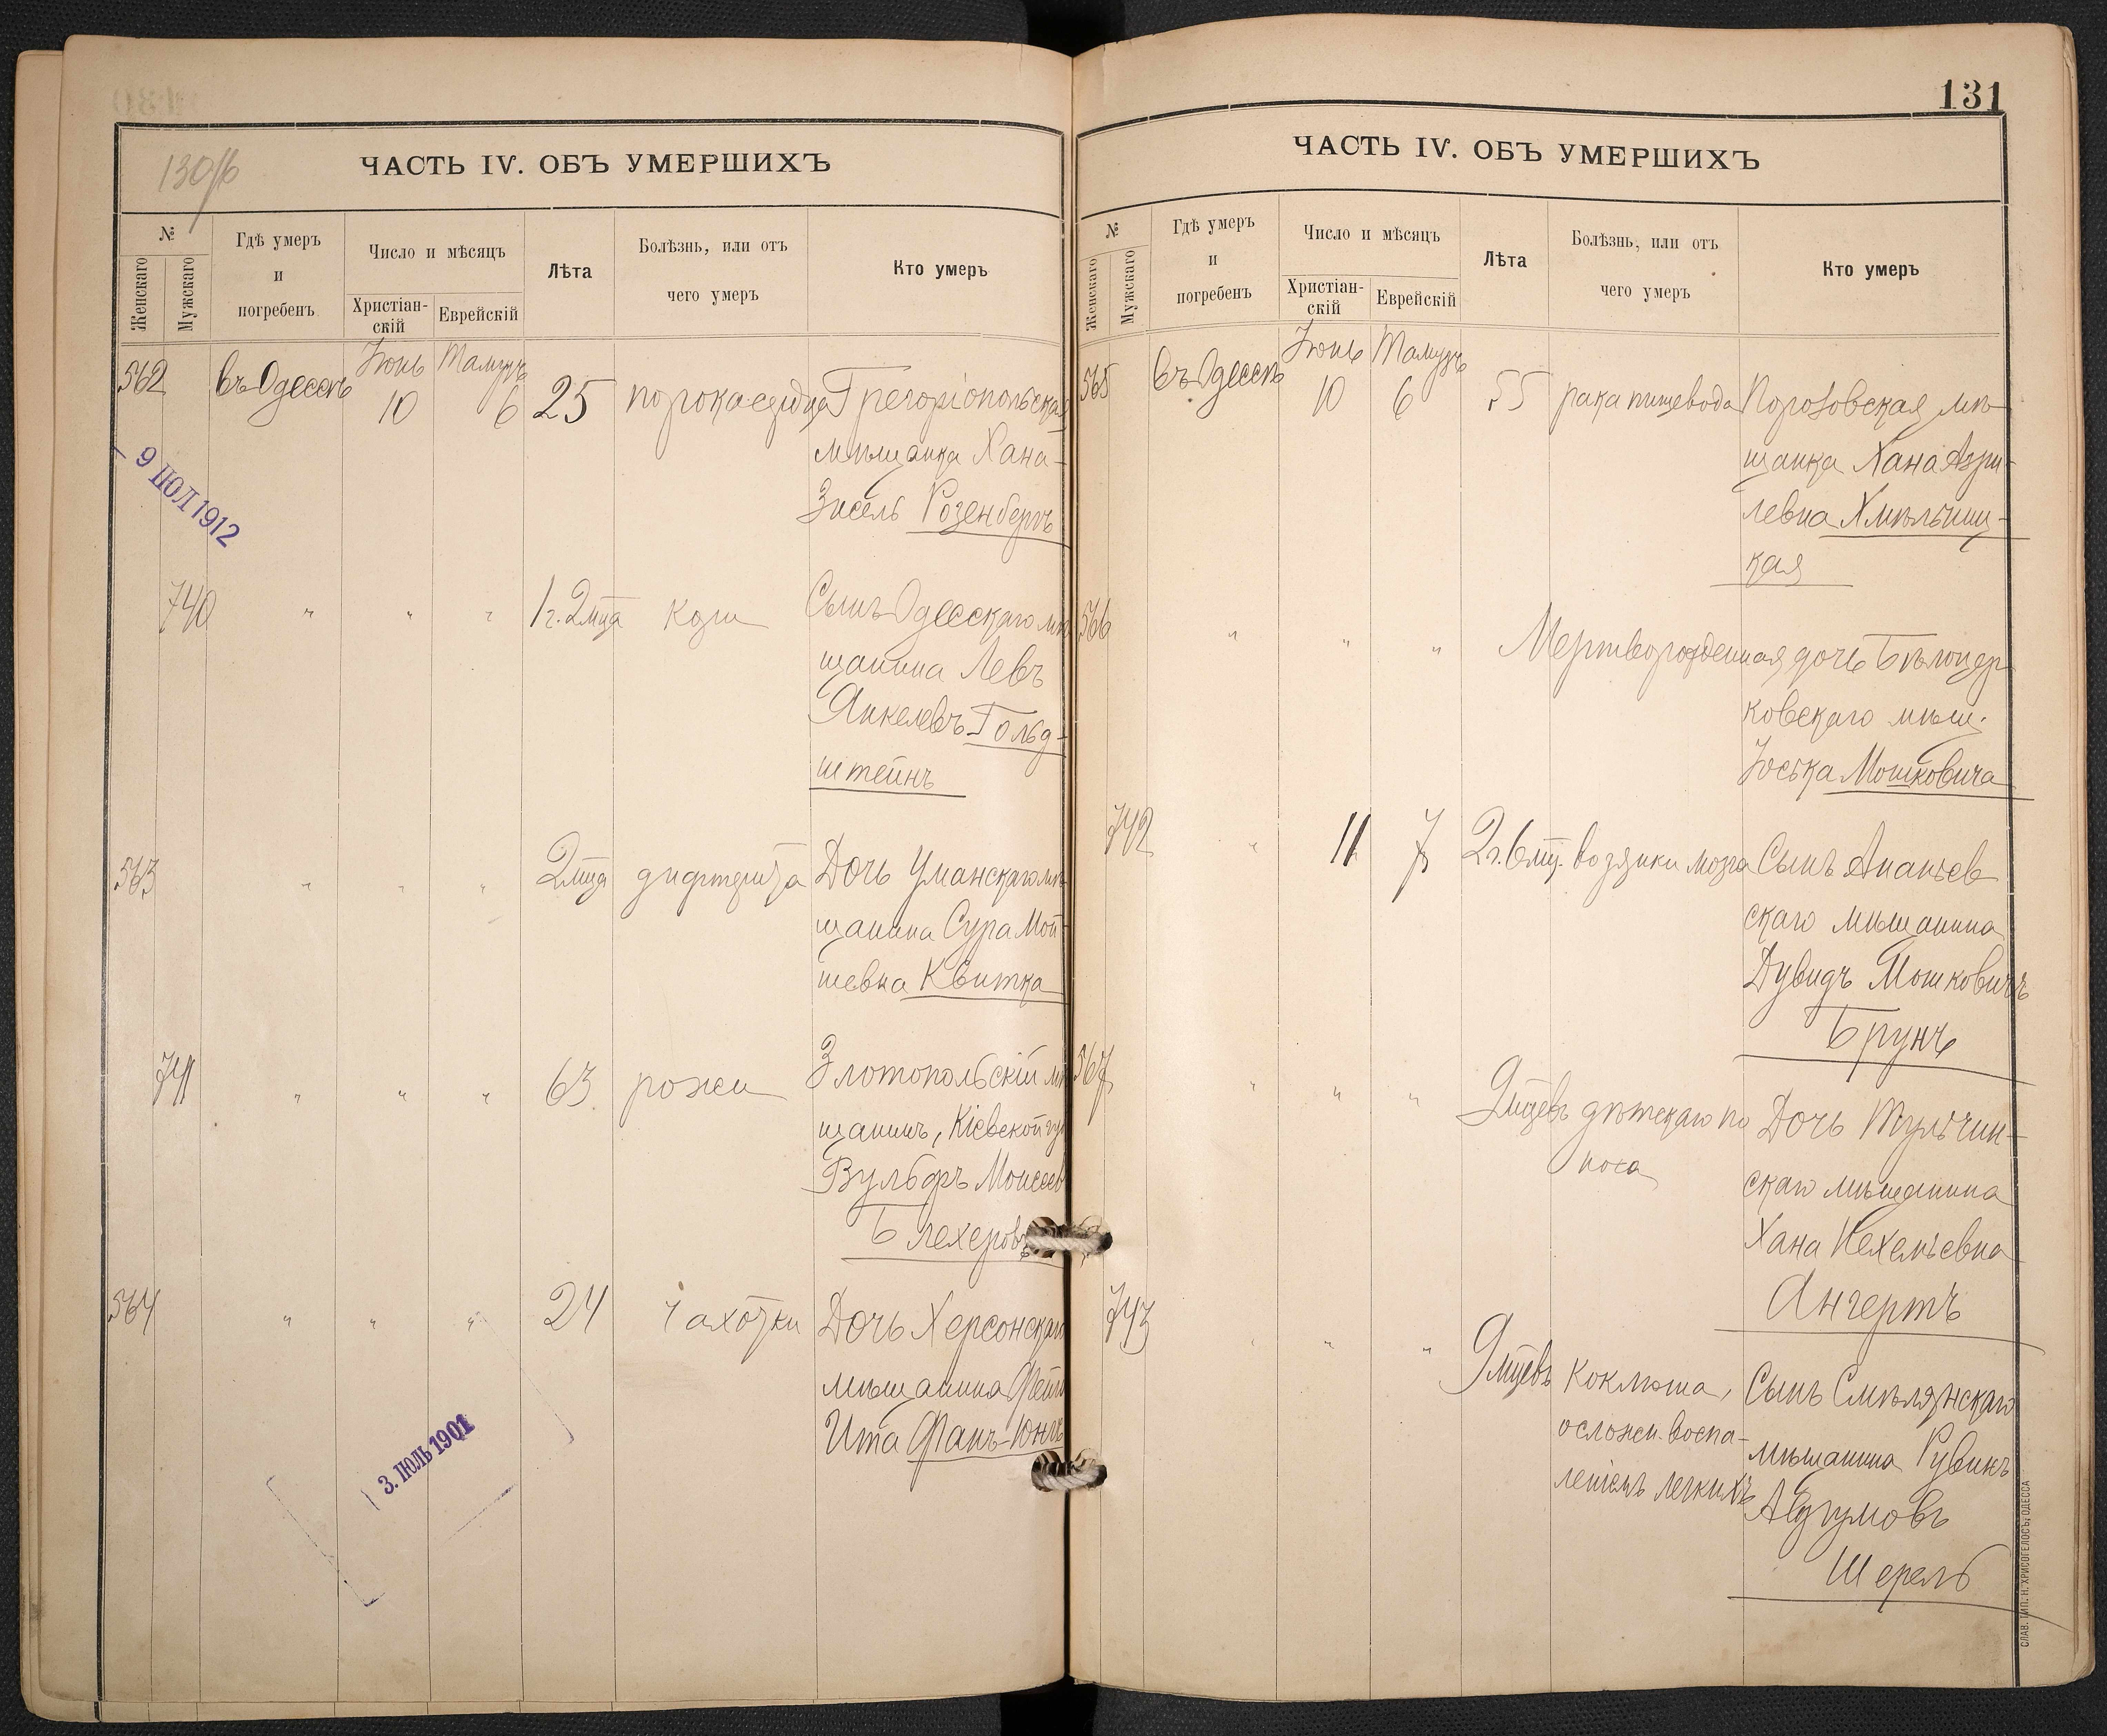 130/б
ЧАСТЬ IV. ОБЪ УМЕРШИХЪ
№
Женскаго
Мужскаго
Гдѣ умеръ
и
погребенъ
Число и мѣсяцъ
Христіан-
скій
Еврейскій
Лѣта
Болѣзнь, или отъ
чего умеръ
Кто умеръ
562
въ Одессѣ
Іюнь
10
Тамузъ
6
25
порока сердца
Григоріопольская
мѣщанка Хана-
Зисель Розенбергъ
9 ІЮЛ 1912
740
" " "
1 г. 2 мца
кори
Сынъ Одесскаго мѣ
щанина Левъ
Янкелевъ Гольд-
штейнъ
563
" " "
2 мца
дифтерита
Дочь Уманскаго мѣ
щанина Сура Мой-
шевна Квитка
741
" " "
63
рожи
Злотопольскій мѣ
щанинъ, Кіевской гу
Вульфъ Моисеев
Блехеровъ
564
" " "
24
чахотки
Дочь Херсонскаго
мѣщанина
Ита Фанъ-Юнгъ
3. ІЮЛЬ 1901
131
ЧАСТЬ IV. ОБЪ УМЕРШИХЪ
№
Женскаго
Мужскаго
Гдѣ умеръ
и
погребенъ
Число и мѣсяцъ
Христіан-
скій
Еврейскій
Лѣта
Болѣзнь, или отъ
чего умеръ
Кто умеръ
565
въ Одессѣ
Іюнь
10
Тамузъ
6
55
рака пищевода
Порозовская мѣ-
щанка Хана Азри-
левна Хмѣльниц-
кая
566
" " "
Мертворожденная дочь Бѣлоцер
ковскаго мѣщ.
Іоська Мошковича
742
"
11
7
2 г. 6 мц.
водянки мозга
Сынъ Ананьев
скаго мѣщанина
Дувидъ Мошковичъ
Брунъ
567
" " "
9 мцевъ
дѣтскаго по
носа
Дочь Тульчин-
скаго мѣщанина
Хана Нехемьевна
Ангертъ
743
" " "
9 мцевъ
коклюша,
осложн. воспа-
леніемъ легкихъ
Сынъ Смѣлянскаго
мѣщанина Рувинъ
Авдумовъ
Шерель
СЛАВ. ТИП. Н. ХРИСОГЕЛОСЪ, ОДЕССА